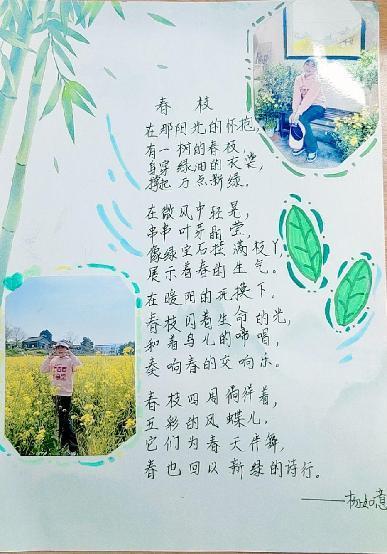 春枝
在那阳光的怀抱,
有一树的春枝,
身穿绿油的衣裳,
撑起万点新绿。
在微风中轻晃,
串串叶芽晶莹,
像绿宝石挂满枝丫,
展示着春的生气。
在暖阳的抚摸下,
春枝闪着生命的光,
和着鸟儿的啼唱,
奏响春的交响乐。
春枝四周徜徉着,
五彩的风蝶儿,
它们为春天伴舞,
春也回以新绿的诗行。
——杨如意